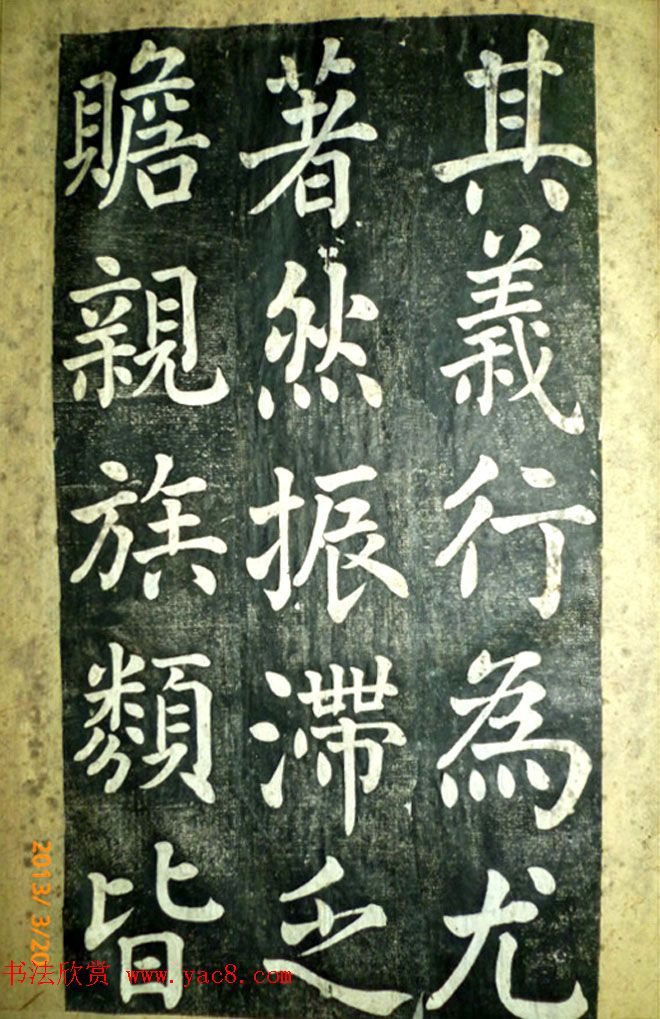 其義行為尤
著然振滯乏
贍親族類皆
2013/ 3/20
书法欣赏 www.yac8.com